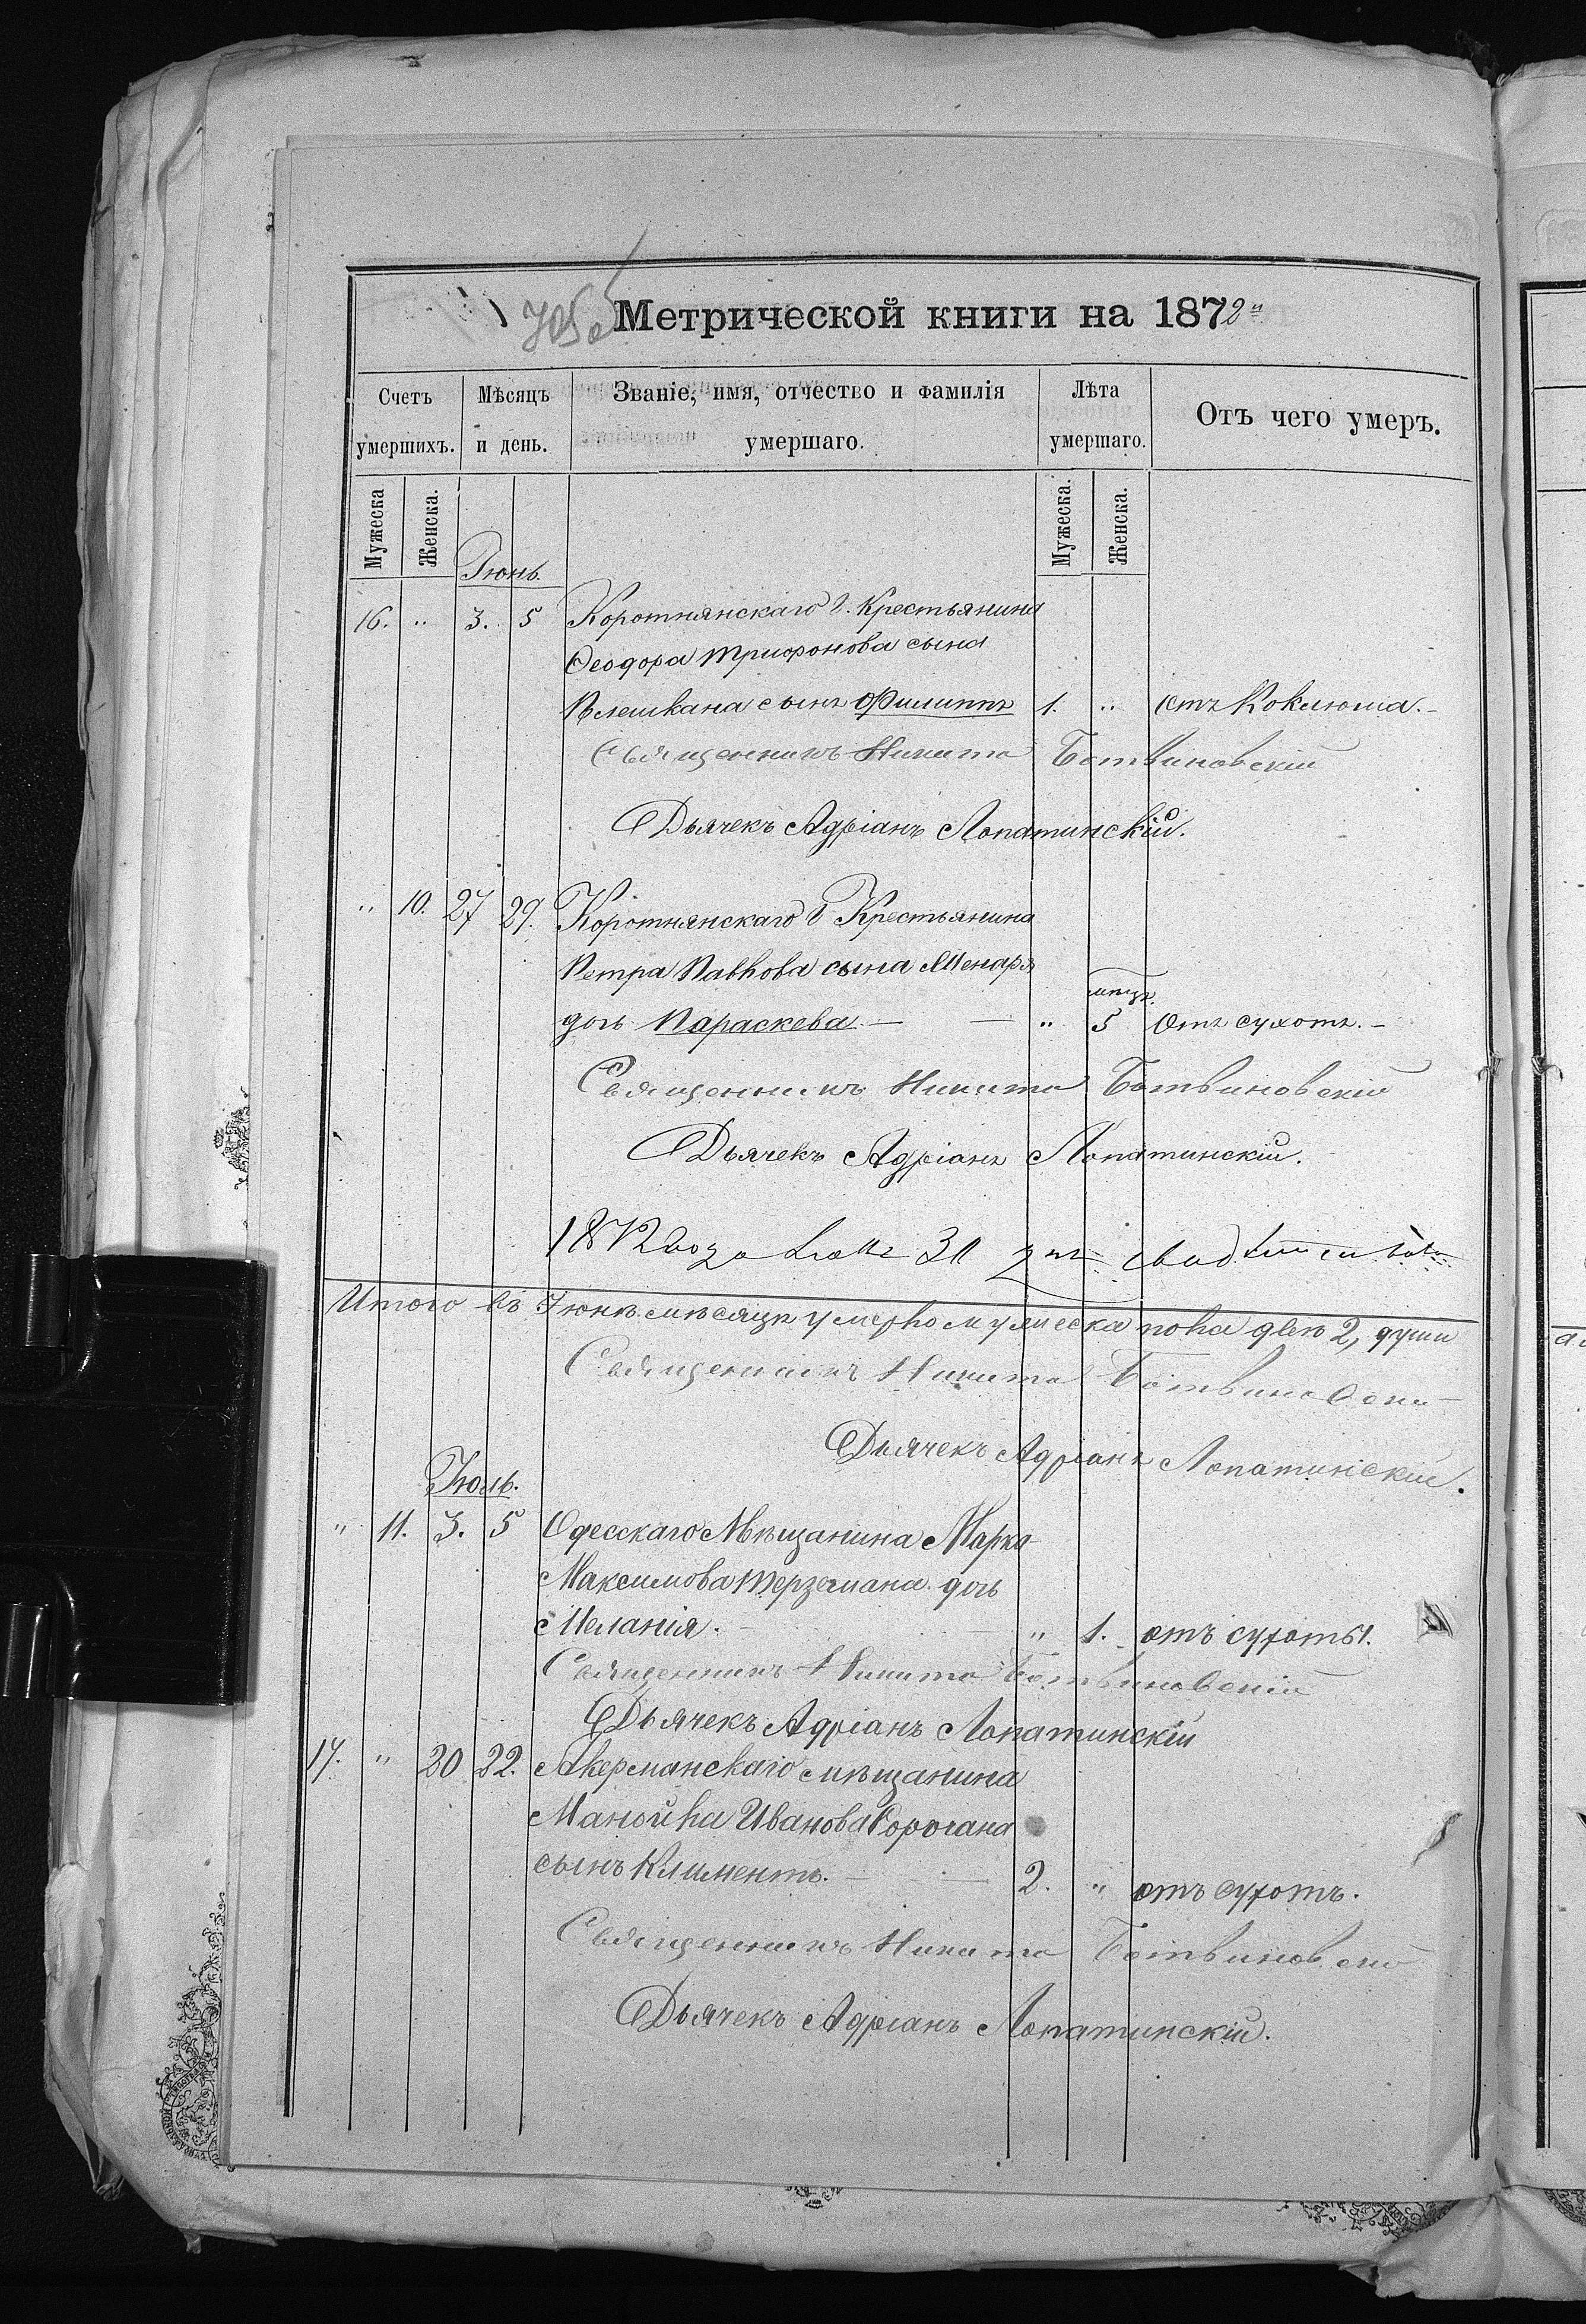 Метрической книги на 1872й
Счетъ умершихъ. Мѣсяцъ и день. Званіе, имя, отчество и фамилія умершаго. Лѣта умершаго. Отъ чего умеръ.
Мужеска Женска. Мужеска. Женска.
Іюнь.
16. " 3. 5 Коротнянскаго О. Крестьянина
Ѳеодора Трифонова сына
Плешкана сынъ Филиппъ 1. " отъ Коклюша.-
Священникъ Никита Ботвиновскій
Дьячекъ Адріанъ Лопатинскій.
" 10. 27 29. Коротнянскаго О Крестьянина
Петра Павлова сына Менаря
дочь Параскева. — — " мѣсц. 5 Отъ сухотъ.-
Священникъ Никита Ботвиновскій
Дьячекъ Адріанъ Лопатинскій.
1872 года 30
Итого въ Іюнѣ мѣсяцѣ умерло мужеска пола двѣ 2, души
Священникъ Никита Ботвиновскі
Дьячекъ Адріанъ Лопатинскій.
Іюль.
" 11. 3. 5 Одесскаго Мѣщанина Марка
Максимова Терземана дочь
Меланія. - " 1. отъ сухоты.
Священникъ Никита Ботвиновскій
Дьячекъ Адріанъ Лопатинскій
17. " 20 22. Акерманскаго мѣщанина
Манойла Иванова Сорочана
сынъ Климентъ. — — 2. " отъ сухотъ.
Священникъ Никита Ботвиновскій
Дьячекъ Адріанъ Лопатинскій.